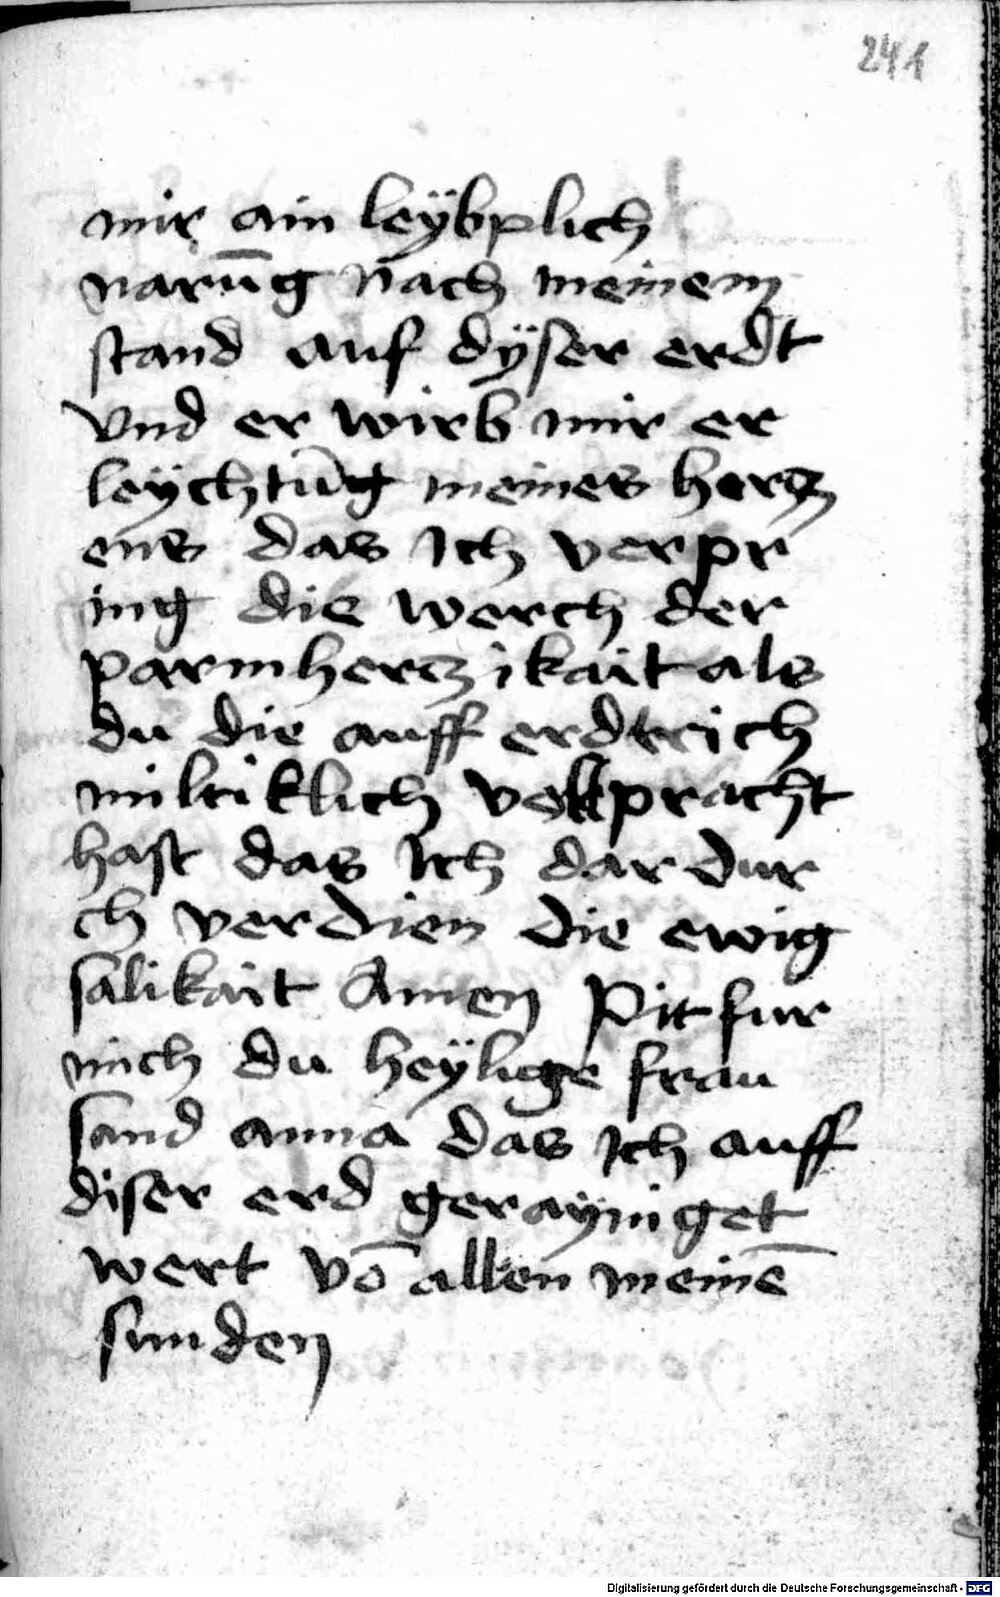 241
mir ain leÿbplich
narūg nach meinem
stand auf dÿser erdt
vnd er wirb mir er
leÿchtūg meines hercz
ens das Ich verpr
ing die werch der
parmherczikait als
du die auff erdtrich
miltiklich volkpracht
hast das Ich dardur
ch verdien die ewig
salikait Amen Pit fur
mich du heÿlige frau
sand anna das Ich auff
diser erd gerayniget
wert vō allen meinē
sunden
Digitalisierung gefördert durch die Deutsche Forschungsgemeinschaft - DFG